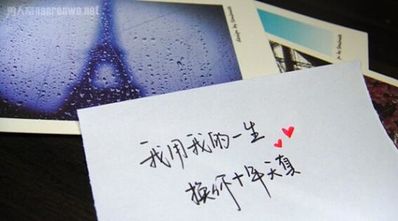 男人窝nanrenwo.net
我用我的一生
换你十年天真